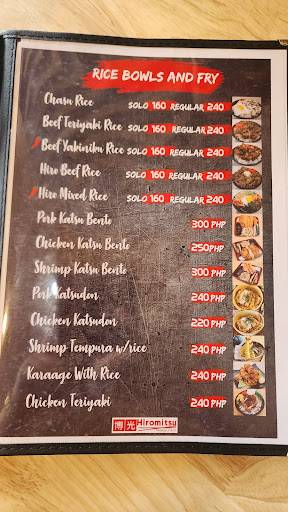 RICE BOWLS AND FRY
Chasu Rice SOLO 160 REGULAR 240
Beef Teriyaki Rice SOLO 160 REGULAR 240
Beef Yakiniku Rice SOLO 160 REGULAR 240
Hiro Beef Rice SOLO 160 REGULAR 240
Hiro Mixed Rice SOLO 160 REGULAR 240
Pork Katsu Bento 300 PHP
Chicken Katsu Bento 250PHP
Shrimp Katsu Bento 300 PHP
Pork Katsudon 240 PHP
Chicken Katsudon 220 PHP
Shrimp Tempura w/rice 240 PHP
Karaage With Rice 240 PHP
Chicken Teriyaki 240 PHP
博光 Hiromitsu